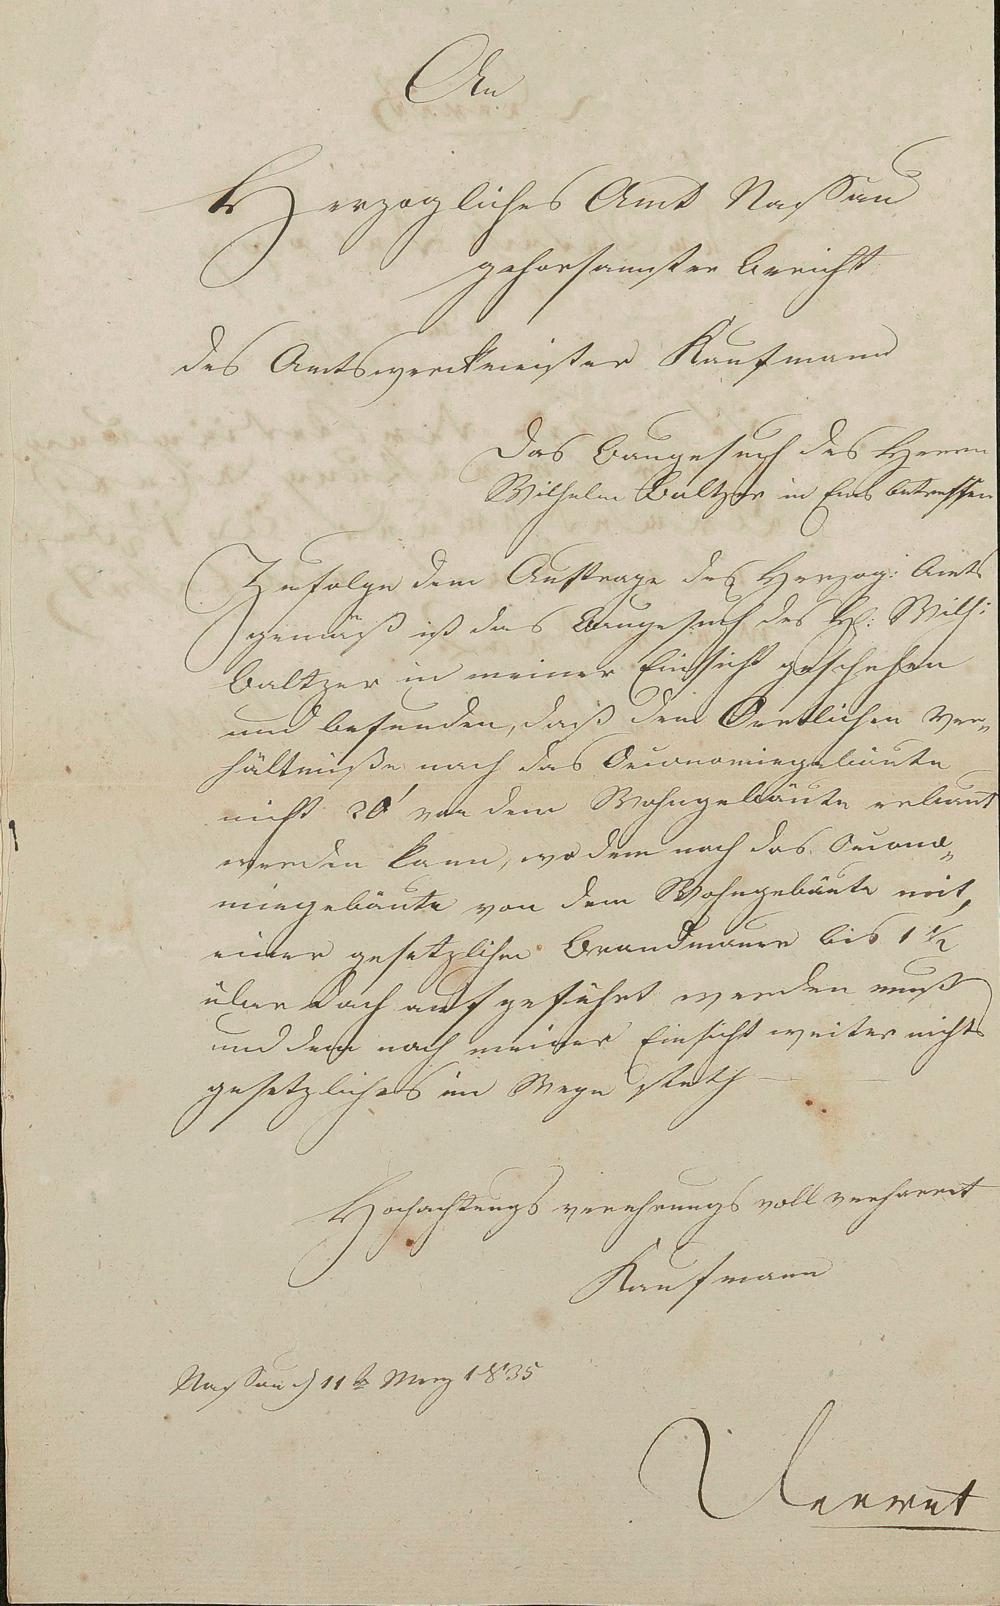 An
Herzogliches Amt Nassau
gehorsamster Bericht
des Amtswerckmeister Kaufmann
Das Baugesuch des Herrn
Wilhelm Baltzer in Ems betreffen
Zufolge dem Auftrage des Herzog: Amts
gemäß ist das Baugesuch des H: Wilh:
Baltzer in meiner Einsicht geschehen
und befunden, daß dem Oertlichen Ver=
hältniße nach das Oeconomiegebäute
nicht 20' von dem Wohngebäute erbaut
werden kann, wo dem nach das Oecono=
miegebäute von dem Wohngebäute mit,
einer gesetzlichen Brandmauer bis 1 1/2
über Dach aufgeführt werden muß
und dem nach meiner Einsicht weiter nichts
gesetzliches im Wege steth
Hochachtungs verehrungs voll verharret
Kaufmann
Nassau d 11t Merz 1835